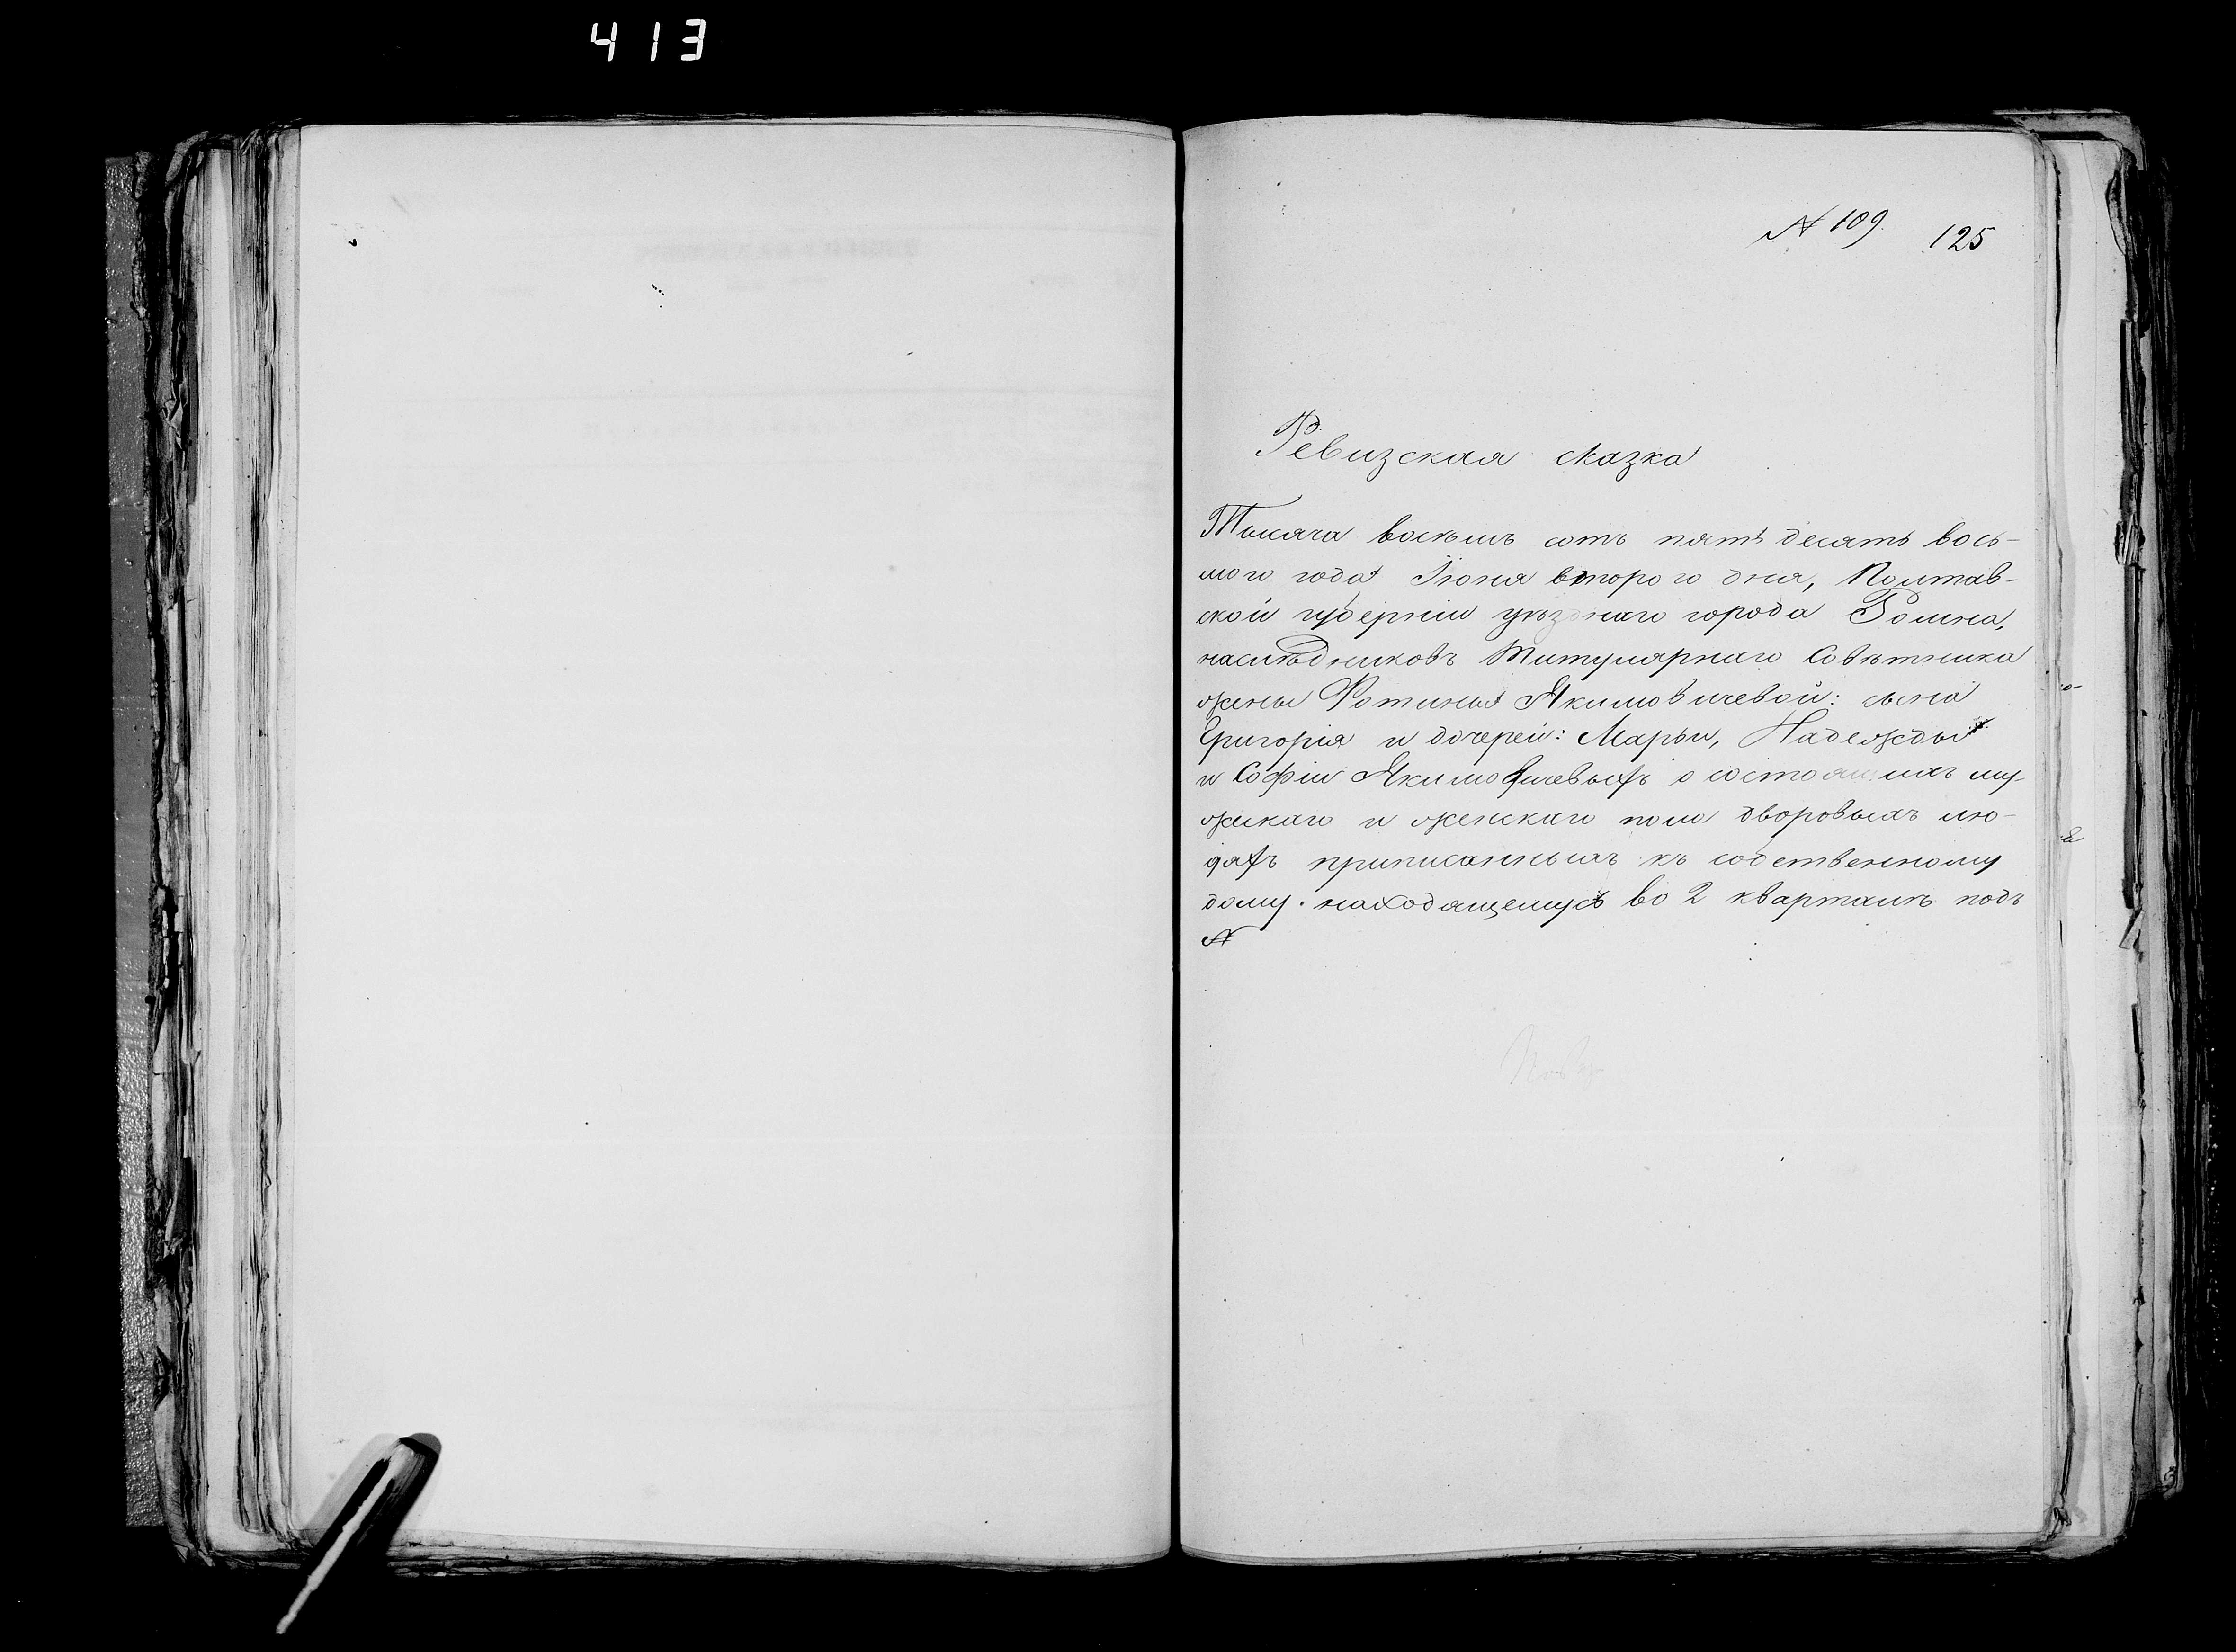 413
№ 109. 125
Ревизская сказка
Тысяча восемь сотъ пятьдесятъ вось-
мого года Июня второго дня, Полтав-
ской губерніи уѣзднаго города Ромна,
наслѣдниковъ Титулярнаго Совѣтника
жены Фотины Якимовичевой: сына
Григорія и дочерей: Марьи, Надежды
и Софіи Якимовичевыхъ о состоящихъ му-
жскаго и женскаго пола дворовыхъ лю-
дяхъ приписанныхъ къ собственному
дому находящемуся во 2 кварталѣ подъ
№